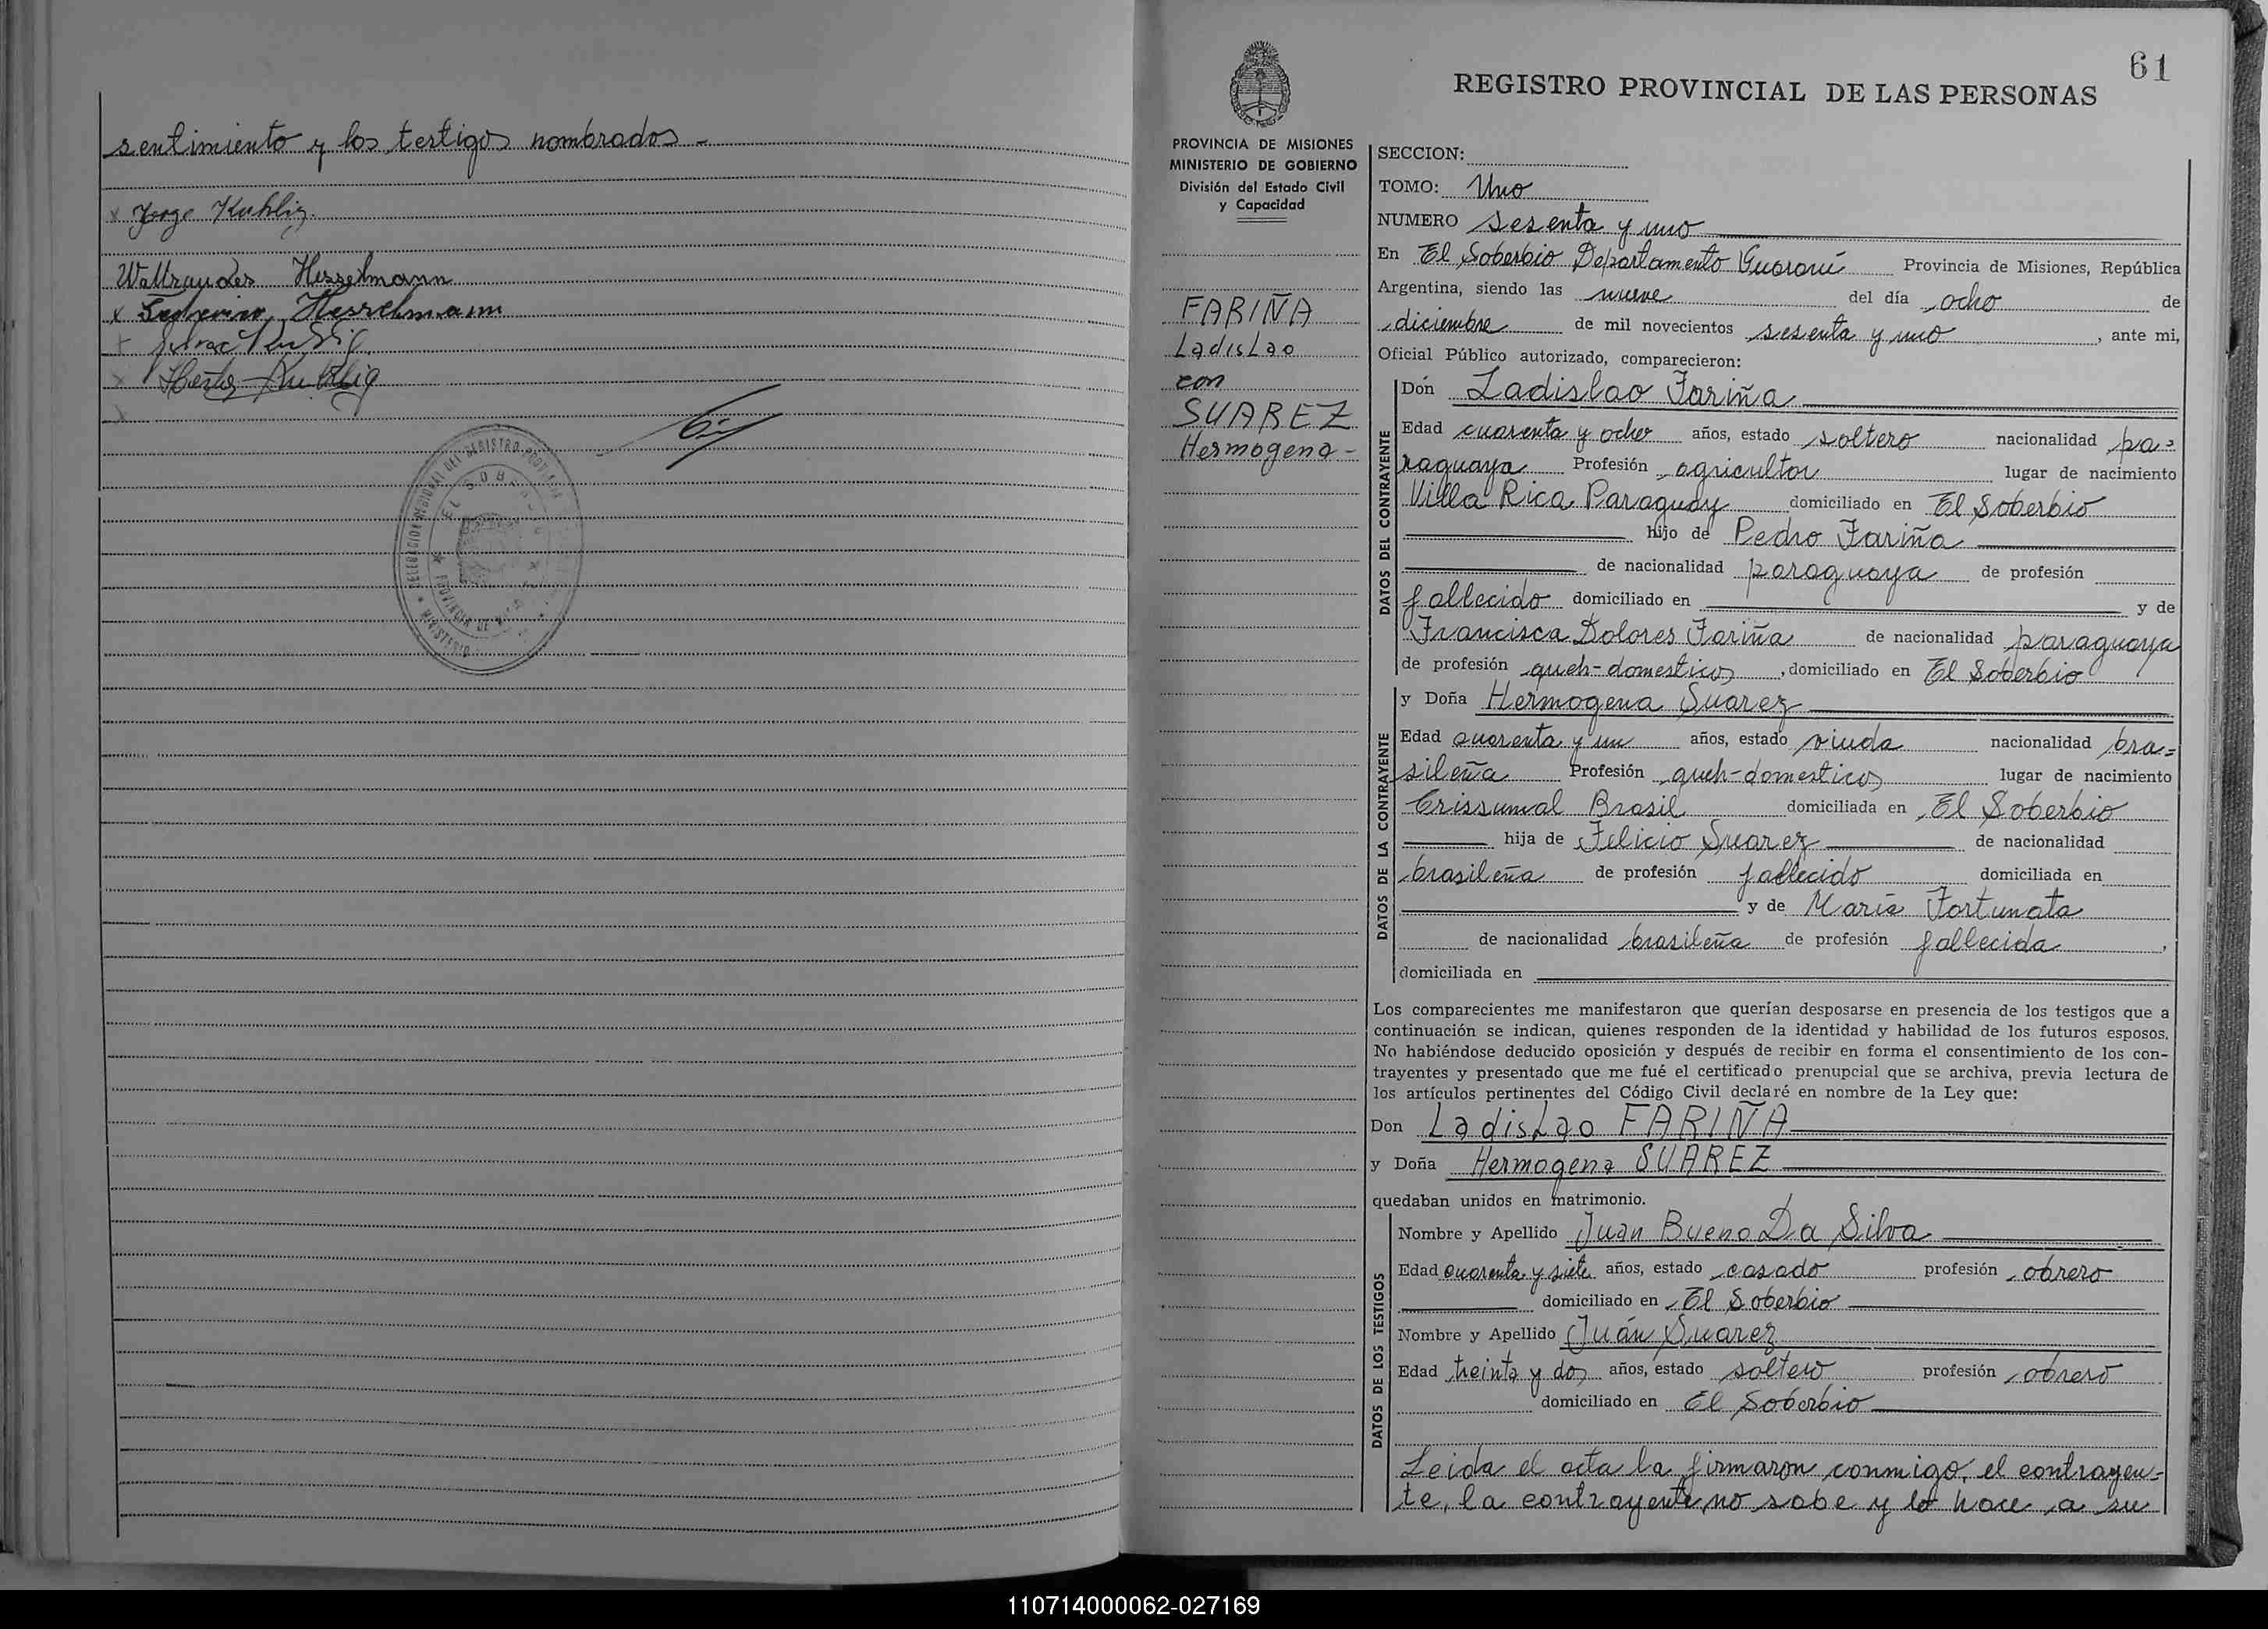 sentimiento y los testigos nombrados -
x Jorge Kuhlig.
Waltraudes Hesselmann
x Hesselmann
x Kuhlig
x
DELEGACION REGIONAL DEL REGISTRO PROVINCIAL
EL SOBERBIO
PROVINCIA DE MISIONES
MINISTERIO
61
REGISTRO PROVINCIAL DE LAS PERSONAS
PROVINCIA DE MISIONES
MINISTERIO DE GOBIERNO
División del Estado Civil
y Capacidad
FARIÑA
Ladislao
con
SUAREZ
Hermogena -
SECCION:
TOMO: Uno
NUMERO sesenta y uno
En El Soberbio Departamento Guaraní Provincia de Misiones, República
Argentina, siendo las nueve del día ocho de
diciembre de mil novecientos sesenta y uno, ante mi,
Oficial Público autorizado, comparecieron:
DATOS DEL CONTRAYENTE
Don Ladislao Fariña
Edad cuarenta y ocho años, estado soltero nacionalidad pa=
raguaya Profesión agricultor lugar de nacimiento
Villa Rica Paraguay domiciliado en El Soberbio
hijo de Pedro Fariña
de nacionalidad paraguaya de profesión
fallecido domiciliado en y de
Francisca Dolores Fariña de nacionalidad paraguaya
de profesión queh-domesticos, domiciliado en El Soberbio
DATOS DE LA CONTRAYENTE
y Doña Hermogena Suarez
Edad cuarenta y un años, estado viuda nacionalidad bra=
sileña Profesión queh-domesticos lugar de nacimiento
Crissumal Brasil domiciliada en El Soberbio
hija de Felicio Suarez de nacionalidad
brasileña de profesión fallecido domiciliada en
y de María Fortunata
de nacionalidad brasileña de profesión fallecida,
domiciliada en
Los comparecientes me manifestaron que querían desposarse en presencia de los testigos que a
continuación se indican, quienes responden de la identidad y habilidad de los futuros esposos.
No habiéndose deducido oposición y después de recibir en forma el consentimiento de los con-
trayentes y presentado que me fué el certificado prenupcial que se archiva, previa lectura de
los artículos pertinentes del Código Civil declaré en nombre de la Ley que:
Don Ladislao FARIÑA
y Doña Hermogena SUAREZ
quedaban unidos en matrimonio.
DATOS DE LOS TESTIGOS
Nombre y Apellido Juan Bueno Da Silva
Edad cuarenta y siete años, estado casado profesión obrero
domiciliado en El Soberbio
Nombre y Apellido Juán Suarez
Edad treinta y dos años, estado soltero profesión obrero
domiciliado en El Soberbio
Leida el acta la firmaron conmigo, el contrayen=
te, la contrayente, no sabe y lo hace a su
110714000062-027169